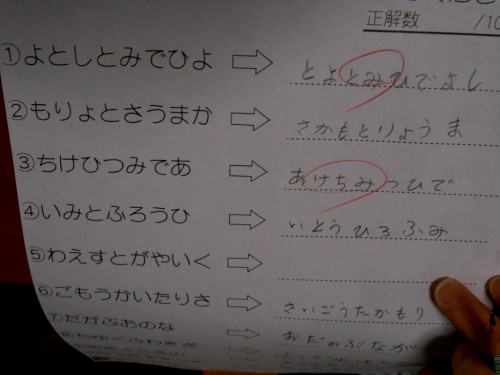 正解数 /10
①よとしとみでひよ ⇨ とよとみひでよし
②もりょとさうまか ⇨ さかもとりょうま
③ちけひつみであ ⇨ あけちみつひで
④いみとふろうひ ⇨ いとうひろふみ
⑤わえすとがやいく ⇨
⑥ごもうかいたりさ ⇨ さいごうたかもり
⑦だがぶおのな ⇨ おだのぶなが